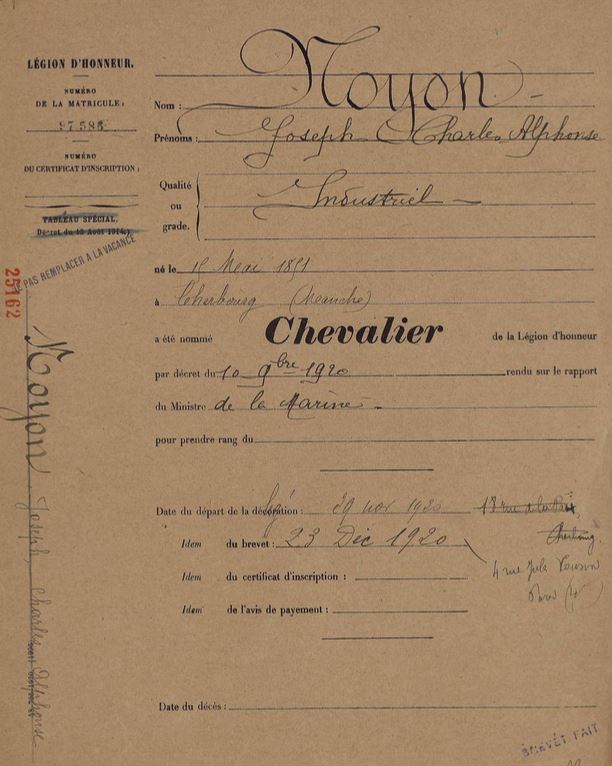 LÉGION D'HONNEUR.
NUMÉRO
DE LA MATRICULE:
97586
NUMÉRO
DU CERTIFICAT D'INSCRIPTION:
TABLEAU SPÉCIAL.
Décret du 13 Août 1914.
NE PAS REMPLACER A LA VACANCE
25162
Noyon Joseph, Charles Alphonse
Nom: Noyon
Prénoms: Joseph Charles Alphonse
Qualité
ou
grade.
Industriel
né le Mai 1851
à Cherbourg (Manche)
a été nommé Chevalier de la Légion d'honneur
par décret du 10 9bre 1920 rendu sur le rapport
du Ministre de la Marine
pour prendre rang du
Date du départ de la décoration: 29 nov 1920 18 rue de la Paix,
Cherbourg
Idem du brevet: 23 Dec 1920
4 rue Jules
Idem du certificat d'inscription:
Idem de l'avis de payement:
Date du décès:
BREVET FAIT